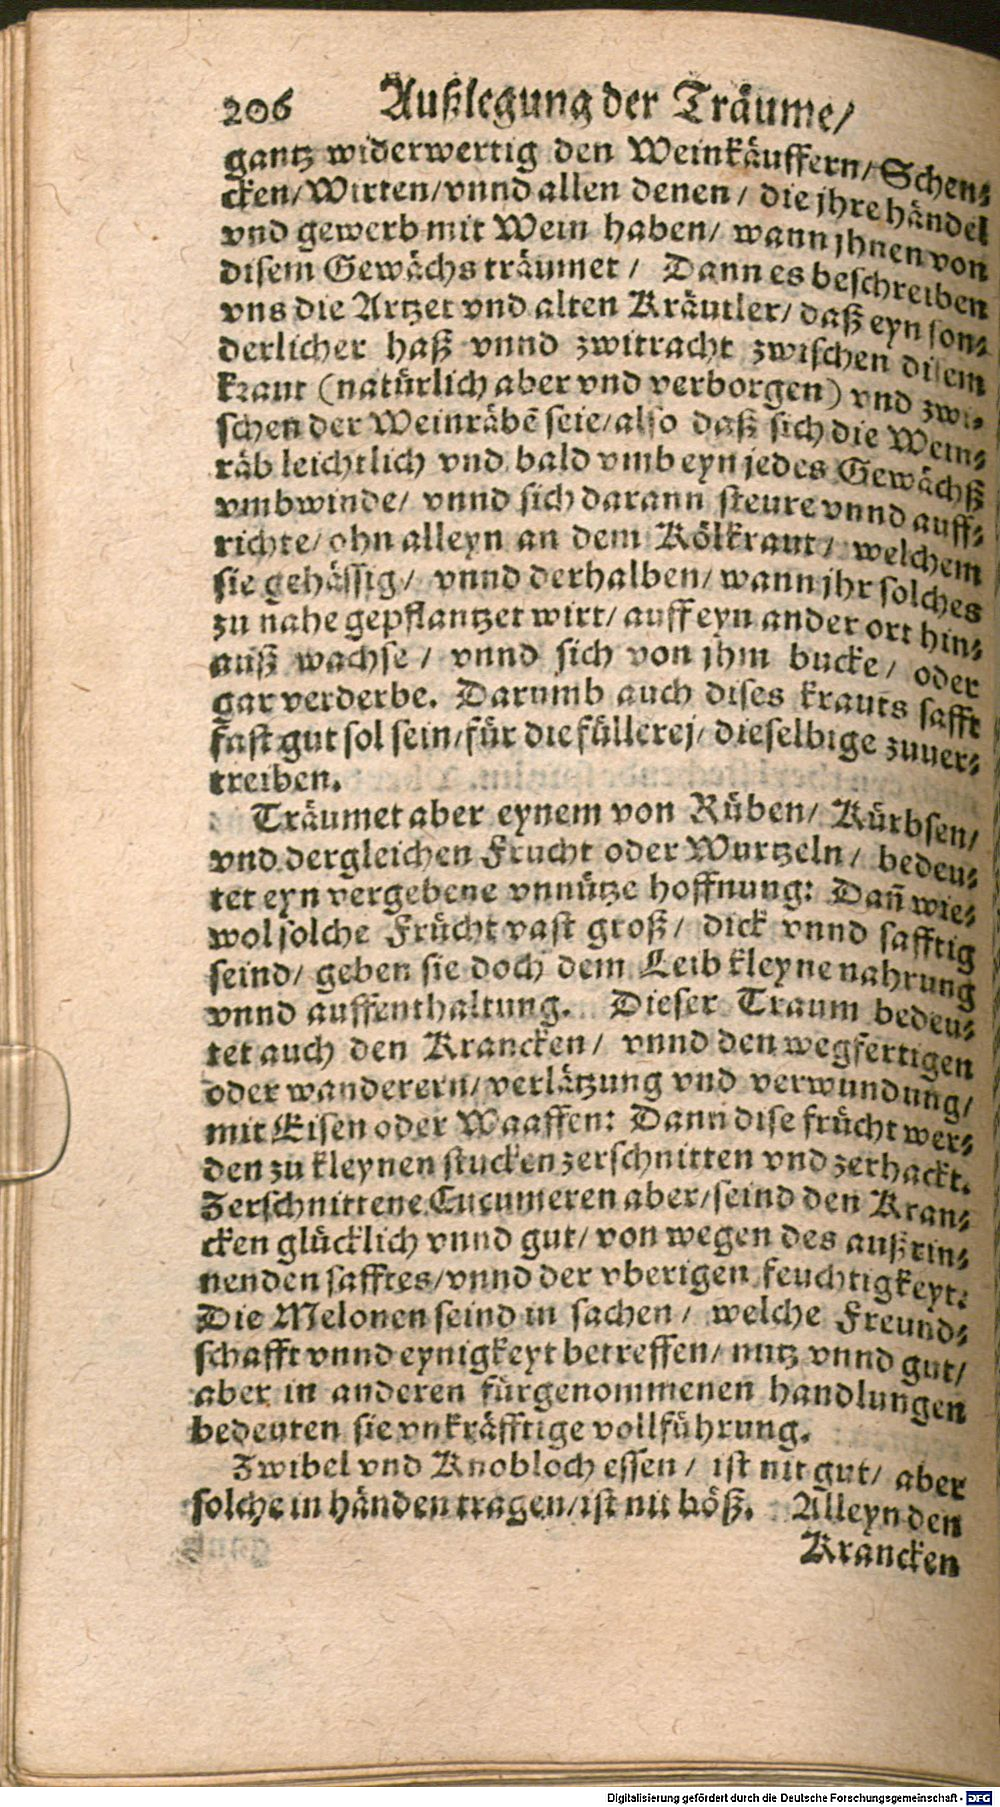 206 Außlegung der Träume/
gantz widerwertig den Weinkäuffern/ Schen⸗
cken/ Wirten/ vnnd allen denen/ die jhre händel
vnd gewerb mit Wein haben/ wann jhnen von
disem Gewächs träumet/ Dann es beschreiben
vns die Artzet vnd alten Kräutler/ daß eyn son⸗
derlicher haß vnnd zwitracht zwischen disem
kraut (natürlich aber vnd verborgen) vnd zwi⸗
schen der Weinräbē seie/ also daß sich die Wein⸗
räb leichtlich vnd bald vmb eyn jedes Gewächß
vmbwinde/ vnnd sich darann steure vnnd auff⸗
richte/ ohn alleyn an dem Kölkraut/ welchem
sie gehässig/ vnnd derhalben/ wann jhr solches
zu nahe gepflantzet wirt/ auff eyn ander ort hin⸗
auß wachse/ vnnd sich von jhm bucke/ oder
gar verderbe. Darumb auch dises krauts safft
fast gut sol sein/ für die füllerej/ dieselbige zuuer⸗
treiben.
Träumet aber eynem von Rüben/ Kürbsen/
vnd dergleichen Frucht oder Wurtzeln/ bedeu⸗
tet eyn vergebene vnnütze hoffnung: Dañ wie⸗
wol solche Frücht vast groß/ dick vnnd safftig
seind/ geben sie doch dem Leib kleyne nahrung
vnnd auffenthaltung. Dieser Traum bedeu⸗
tet auch den Krancken/ vnnd den wegfertigen
oder wanderern/ verlätzung vnd verwundung/
mit Eisen oder Waaffen: Dann dise frücht wer⸗
den zu kleynen stucken zerschnitten vnd zerhackt.
Zerschnittene Cucumeren aber/ seind den Kran⸗
cken glücklich vnnd gut/ von wegen des außrin⸗
nenden safftes/ vnnd der vberigen feuchtigkeyt:
Die Melonen seind in sachen/ welche Freund⸗
schafft vnnd eynigkeyt betreffen/ nutz vnnd gut/
aber in anderen fürgenommenen handlungen
bedeuten sie vnkräfftige vollführung.
Zwibel vnd Knobloch essen/ ist nit gut/ aber
solche in händen tragen/ ist nit böß. Alleyn den
Krancken
Digitalisierung gefördert durch die Deutsche Forschungsgemeinschaft - DFG